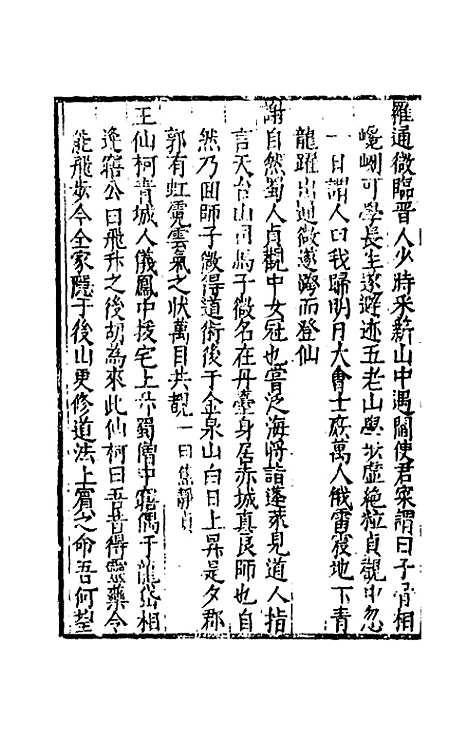 羅通微臨晋人少時采薪山中遇閭使君家謂曰子骨相
巉峭可學長生遂遯迹五老山學步虛絶粒貞觀中忽
一日謂人曰我歸明月大會士庶萬人俄雷震地下青
龍躍出通微遂躋而登仙
謝自然蜀人貞觀中女冠也嘗泛海將詣蓬萊見道人指
言天台山司馬子微名在丹臺身居赤城真良師也自
然乃回師子微得道術後于金泉山白日上昇是夕郡
郭有虹霓雲氣之狀萬目共覩一曰焦靜貞
王仙柯青城人儀鳳中拔宅上昇蜀僧中寤偶于龍岱相
逢寤公曰飛升之後胡為來此仙柯曰吾昔得靈藥令
能飛步今全家隱于後山更修道法上賓之命吾何望